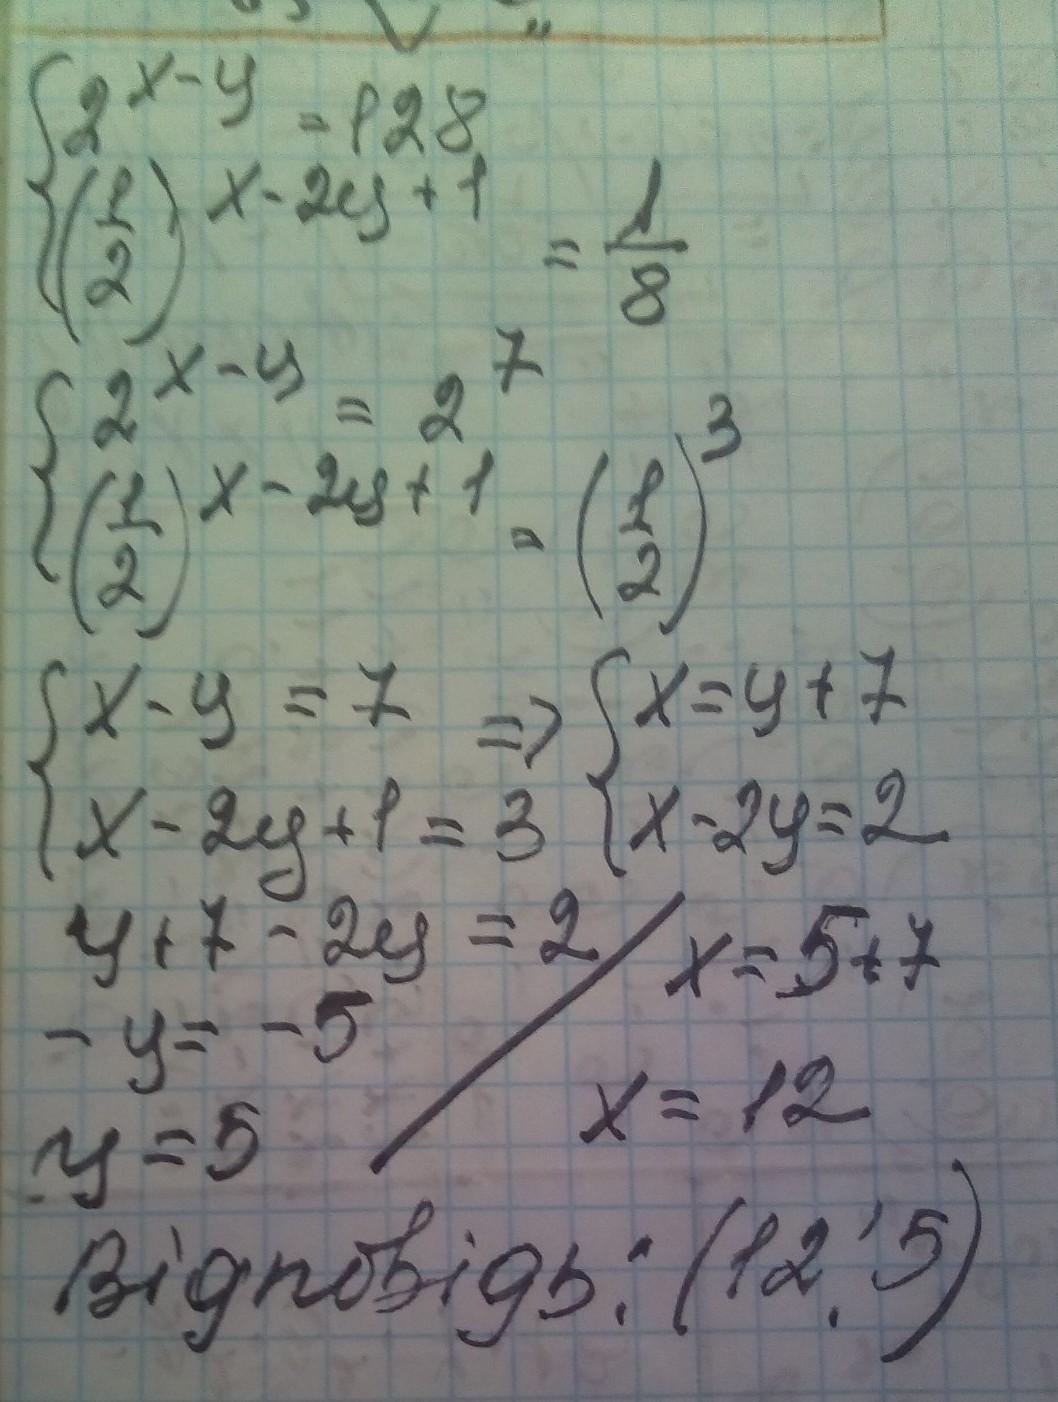 {2^(x-y) = 128
{(1/2)^(x-2y+1) = 1/8
{2^(x-y) = 2^7
{(1/2)^(x-2y+1) = (1/2)^3
{x-y = 7 => {x=y+7
{x-2y+1=3 {x-2y=2
y+7-2y=2 / x=5+7
-y=-5
y=5 x=12
Відповідь: (12; 5)